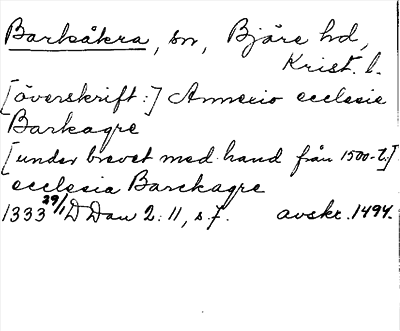 Barkåkra, sn, Bjäre hd,
Krist. l.
[överskrift:] Annexio ecclesie
Barkagre
[under brevet med hand från 1500-t.]
ecclesia Barckagre
1333 29/1 D Dan 2:11, s 7. avskr. 1494.